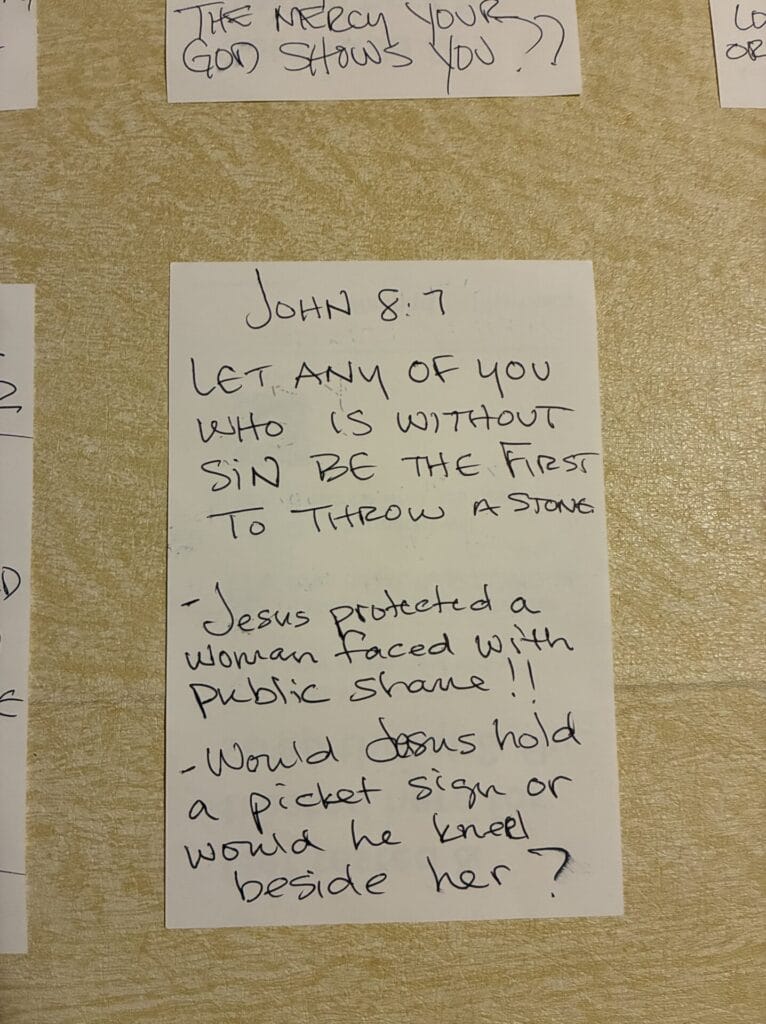 THE MERCY YOUR
GOD SHOWS YOU??
LO
OR
JOHN 8:7
LET ANY OF YOU
WHO IS WITHOUT
SIN BE THE FIRST
TO THROW A STONE
- Jesus protected a
woman faced with
public shame!!
- Would Jesus hold
a picket sign or
would he kneel
beside her?
D
E